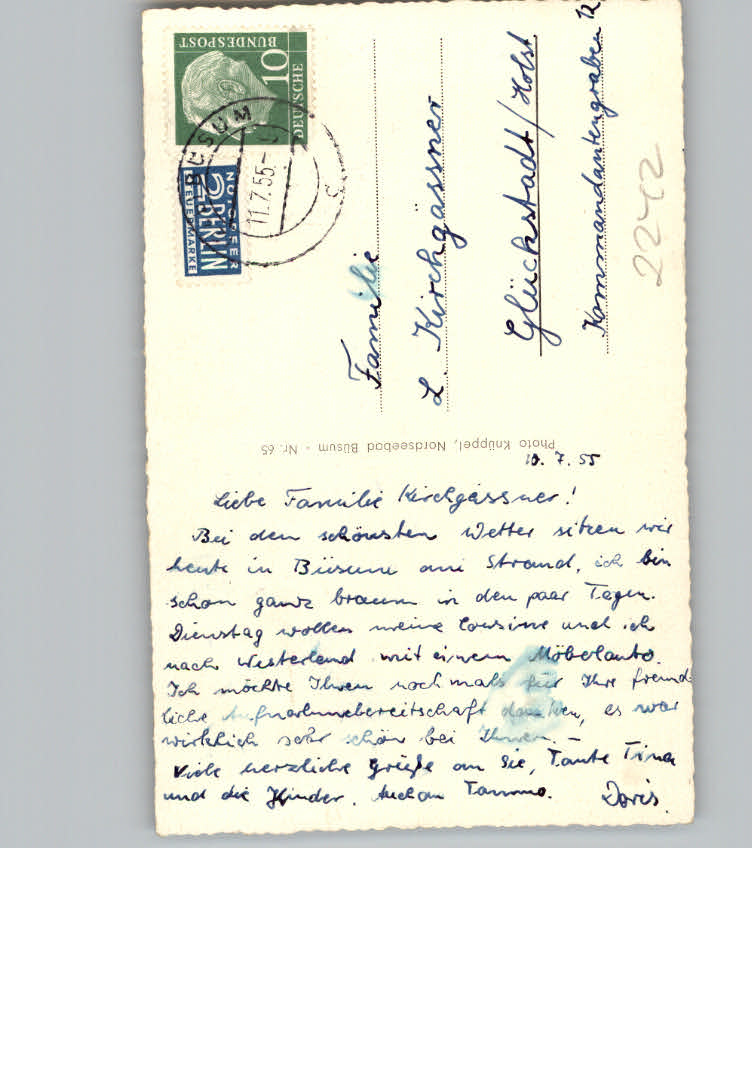 DEUTSCHE
BUNDESPOST
10
BÜSUM
11.7.55
c
NOTOPFER
2 BERLIN
STEUERMARKE
Familie
L. Kirchgässner
Glückstadt/Holst
Kommandantengraben 12
2242
Photo Knüppel, Nordseebad Büsum - Nr. 65
10. 7. 55
Liebe Familie Kirchgässner!
Bei dem schönsten Wetter sitzen wir
heute in Büsum am Strand, ich bin
schon ganz braun in den paar Tagen.
Dienstag wollen meine Cousine und ich
nach Westerland mit einem Möbelauto.
Ich möchte Ihnen nochmals für Ihre freund-
liche Aufnahmebereitschaft danken, es war
wirklich sehr schön bei Ihnen. –
Viele herzliche Grüße an Sie, Tante Tina
und die Kinder. Auch an Tammo. Doris.